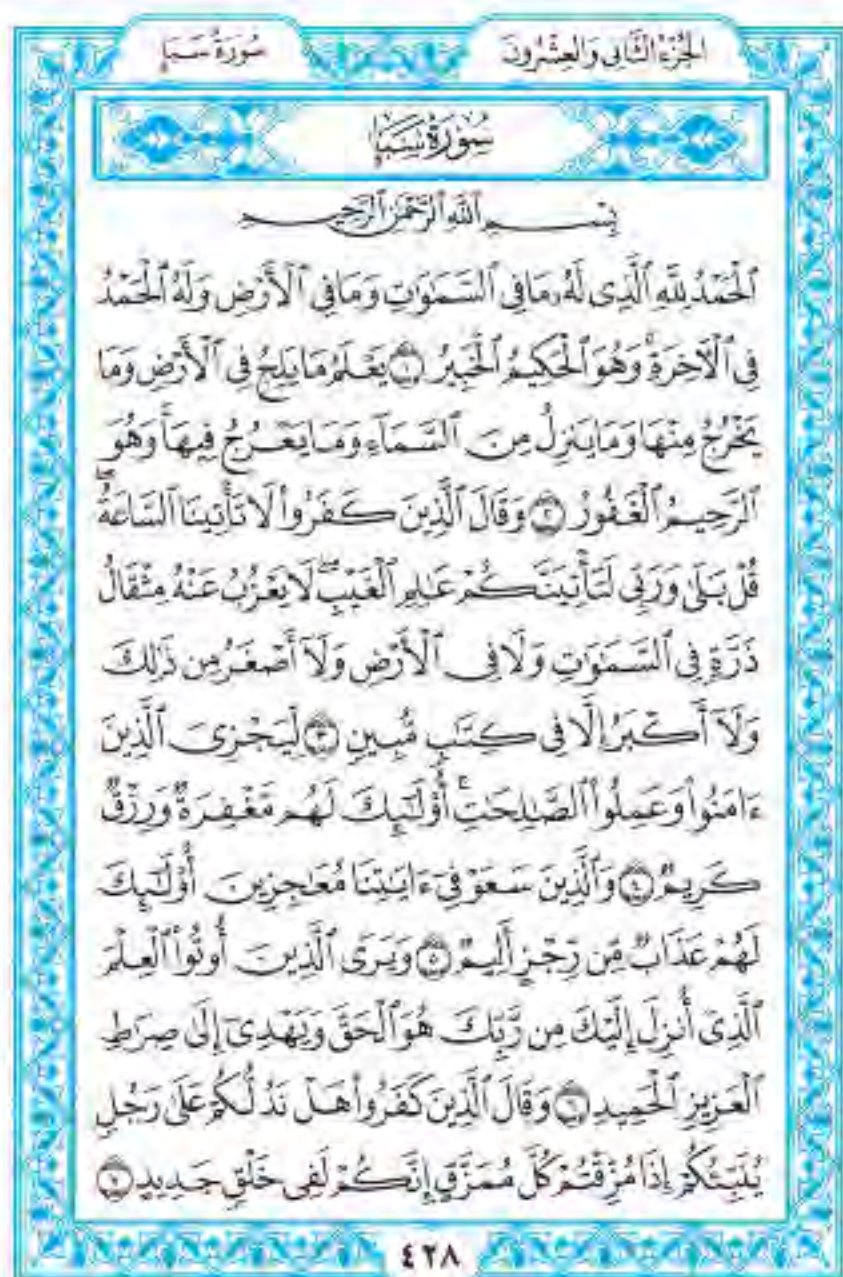 الجزء الثاني والعشرون
سورة سبإ
سُورَةُ سَبَإٍ
بِسْمِ ٱللَّهِ ٱلرَّحْمَٰنِ ٱلرَّحِيمِ
ٱلْحَمْدُ لِلَّهِ ٱلَّذِى لَهُۥ مَا فِى ٱلسَّمَٰوَٰتِ وَمَا فِى ٱلْأَرْضِ وَلَهُ ٱلْحَمْدُ
فِى ٱلْءَاخِرَةِ ۚ وَهُوَ ٱلْحَكِيمُ ٱلْخَبِيرُ ١ يَعْلَمُ مَا يَلِجُ فِى ٱلْأَرْضِ وَمَا
يَخْرُجُ مِنْهَا وَمَا يَنزِلُ مِنَ ٱلسَّمَآءِ وَمَا يَعْرُجُ فِيهَا ۚ وَهُوَ
ٱلرَّحِيمُ ٱلْغَفُورُ ٢ وَقَالَ ٱلَّذِينَ كَفَرُوا۟ لَا تَأْتِينَا ٱلسَّاعَةُ ۖ
قُلْ بَلَىٰ وَرَبِّى لَتَأْتِيَنَّكُمْ عَٰلِمِ ٱلْغَيْبِ ۖ لَا يَعْزُبُ عَنْهُ مِثْقَالُ
ذَرَّةٍ فِى ٱلسَّمَٰوَٰتِ وَلَا فِى ٱلْأَرْضِ وَلَآ أَصْغَرُ مِن ذَٰلِكَ
وَلَآ أَكْبَرُ إِلَّا فِى كِتَٰبٍ مُّبِينٍ ٣ لِّيَجْزِىَ ٱلَّذِينَ
ءَامَنُوا۟ وَعَمِلُوا۟ ٱلصَّٰلِحَٰتِ ۚ أُو۟لَٰٓئِكَ لَهُم مَّغْفِرَةٌ وَرِزْقٌ
كَرِيمٌ ٤ وَٱلَّذِينَ سَعَوْ فِىٓ ءَايَٰتِنَا مُعَٰجِزِينَ أُو۟لَٰٓئِكَ
لَهُمْ عَذَابٌ مِّن رِّجْزٍ أَلِيمٌ ٥ وَيَرَى ٱلَّذِينَ أُوتُوا۟ ٱلْعِلْمَ
ٱلَّذِىٓ أُنزِلَ إِلَيْكَ مِن رَّبِّكَ هُوَ ٱلْحَقَّ وَيَهْدِىٓ إِلَىٰ صِرَٰطِ
ٱلْعَزِيزِ ٱلْحَمِيدِ ٦ وَقَالَ ٱلَّذِينَ كَفَرُوا۟ هَلْ نَدُلُّكُمْ عَلَىٰ رَجُلٍ
يُنَبِّئُكُمْ إِذَا مُزِّقْتُمْ كُلَّ مُمَزَّقٍ إِنَّكُمْ لَفِى خَلْقٍ جَدِيدٍ ٧
٤٢٨